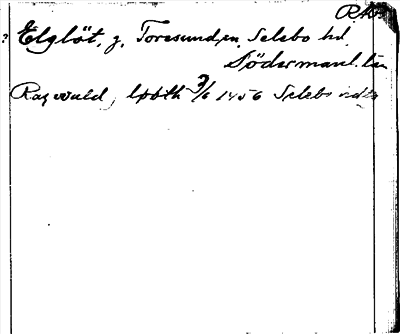 RAP
? Elglöt. g. Toresund sn, Selebo hd,
Södermanl. län
Ragvald, lpbth 9/6 1456 Selebo